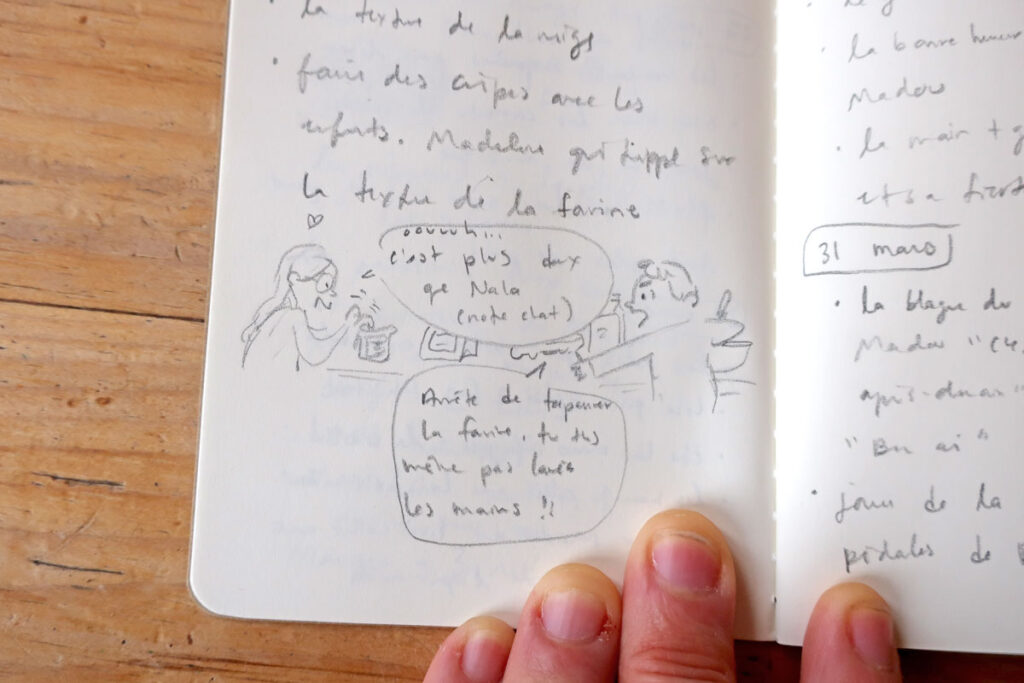 la texture de la neige
faire des crêpes avec les
enfants. Madeleine qui s'appl sur
la texture de la farine
oouuuh...
c'est plus doux
que Nala
(note chat)
Arrête de
la farine, tu t'es
même pas lavés
les mains !!
la bonne humeur
Madou
la main +
et sa
31 mars
la blague de
Madou "
après-demain"
"Ben ai"
jouer de la
pédales de